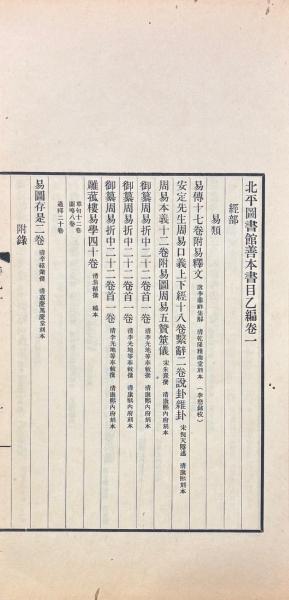 北平圖書館善本書目乙編卷一
經部
易類
易傳十七卷附易釋文 唐李鼎祚集解 清乾隆雅雨堂刻本 (李慈銘校)
安定先生周易口義上下經十八卷繫辭二卷說卦雜卦 宋倪天隱述 清康熙刻本
周易本義十二卷附易圖周易五贊筮儀 宋朱熹撰 清康熙內府刻本
御纂周易折中二十二卷首一卷 清李光地等奉敕撰 清康熙內府刻本
御纂周易折中二十二卷首一卷 清李光地等奉敕撰 清康熙內府刻本
御纂周易折中二十二卷首一卷 清李光地等奉敕撰 清康熙內府刻本
雕菰樓易學四十卷 清焦循撰 稿本
章句十二卷
圖略八卷
通釋二十卷
易圖存是二卷 清嘉慶萬慶堂刻本
附錄